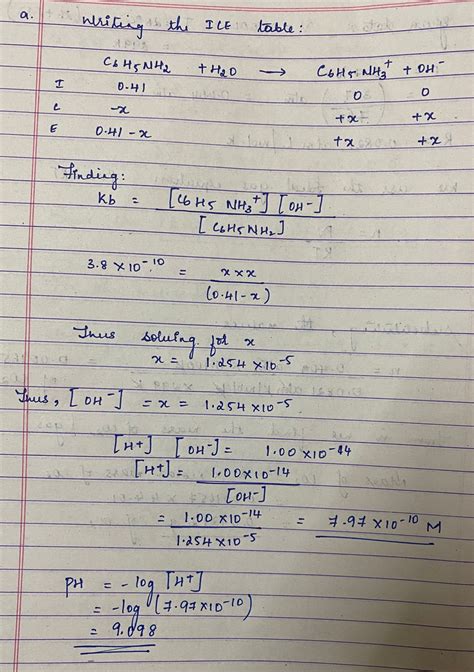 a. Writing the ICE table:
C6H5NH2 + H2O → C6H5NH3+ + OH-
I 0.41 0 0
C -x +x +x
E 0.41-x +x +x
Finding:
Kb = [C6H5NH3+] [OH-]
[C6H5NH2]
3.8 x 10-10 = x x x
(0.41-x)
Thus solving for x
x = 1.254 x 10-5
Thus, [OH-] = x = 1.254 x 10-5
[H+] [OH-] = 1.00 x 10-14
[H+] = 1.00 x 10-14
[OH-]
= 1.00 x 10-14 = 7.97 x 10-10 M
1.254 x 10-5
PH = -log [H+]
= -log (7.97 x 10-10)
= 9.098